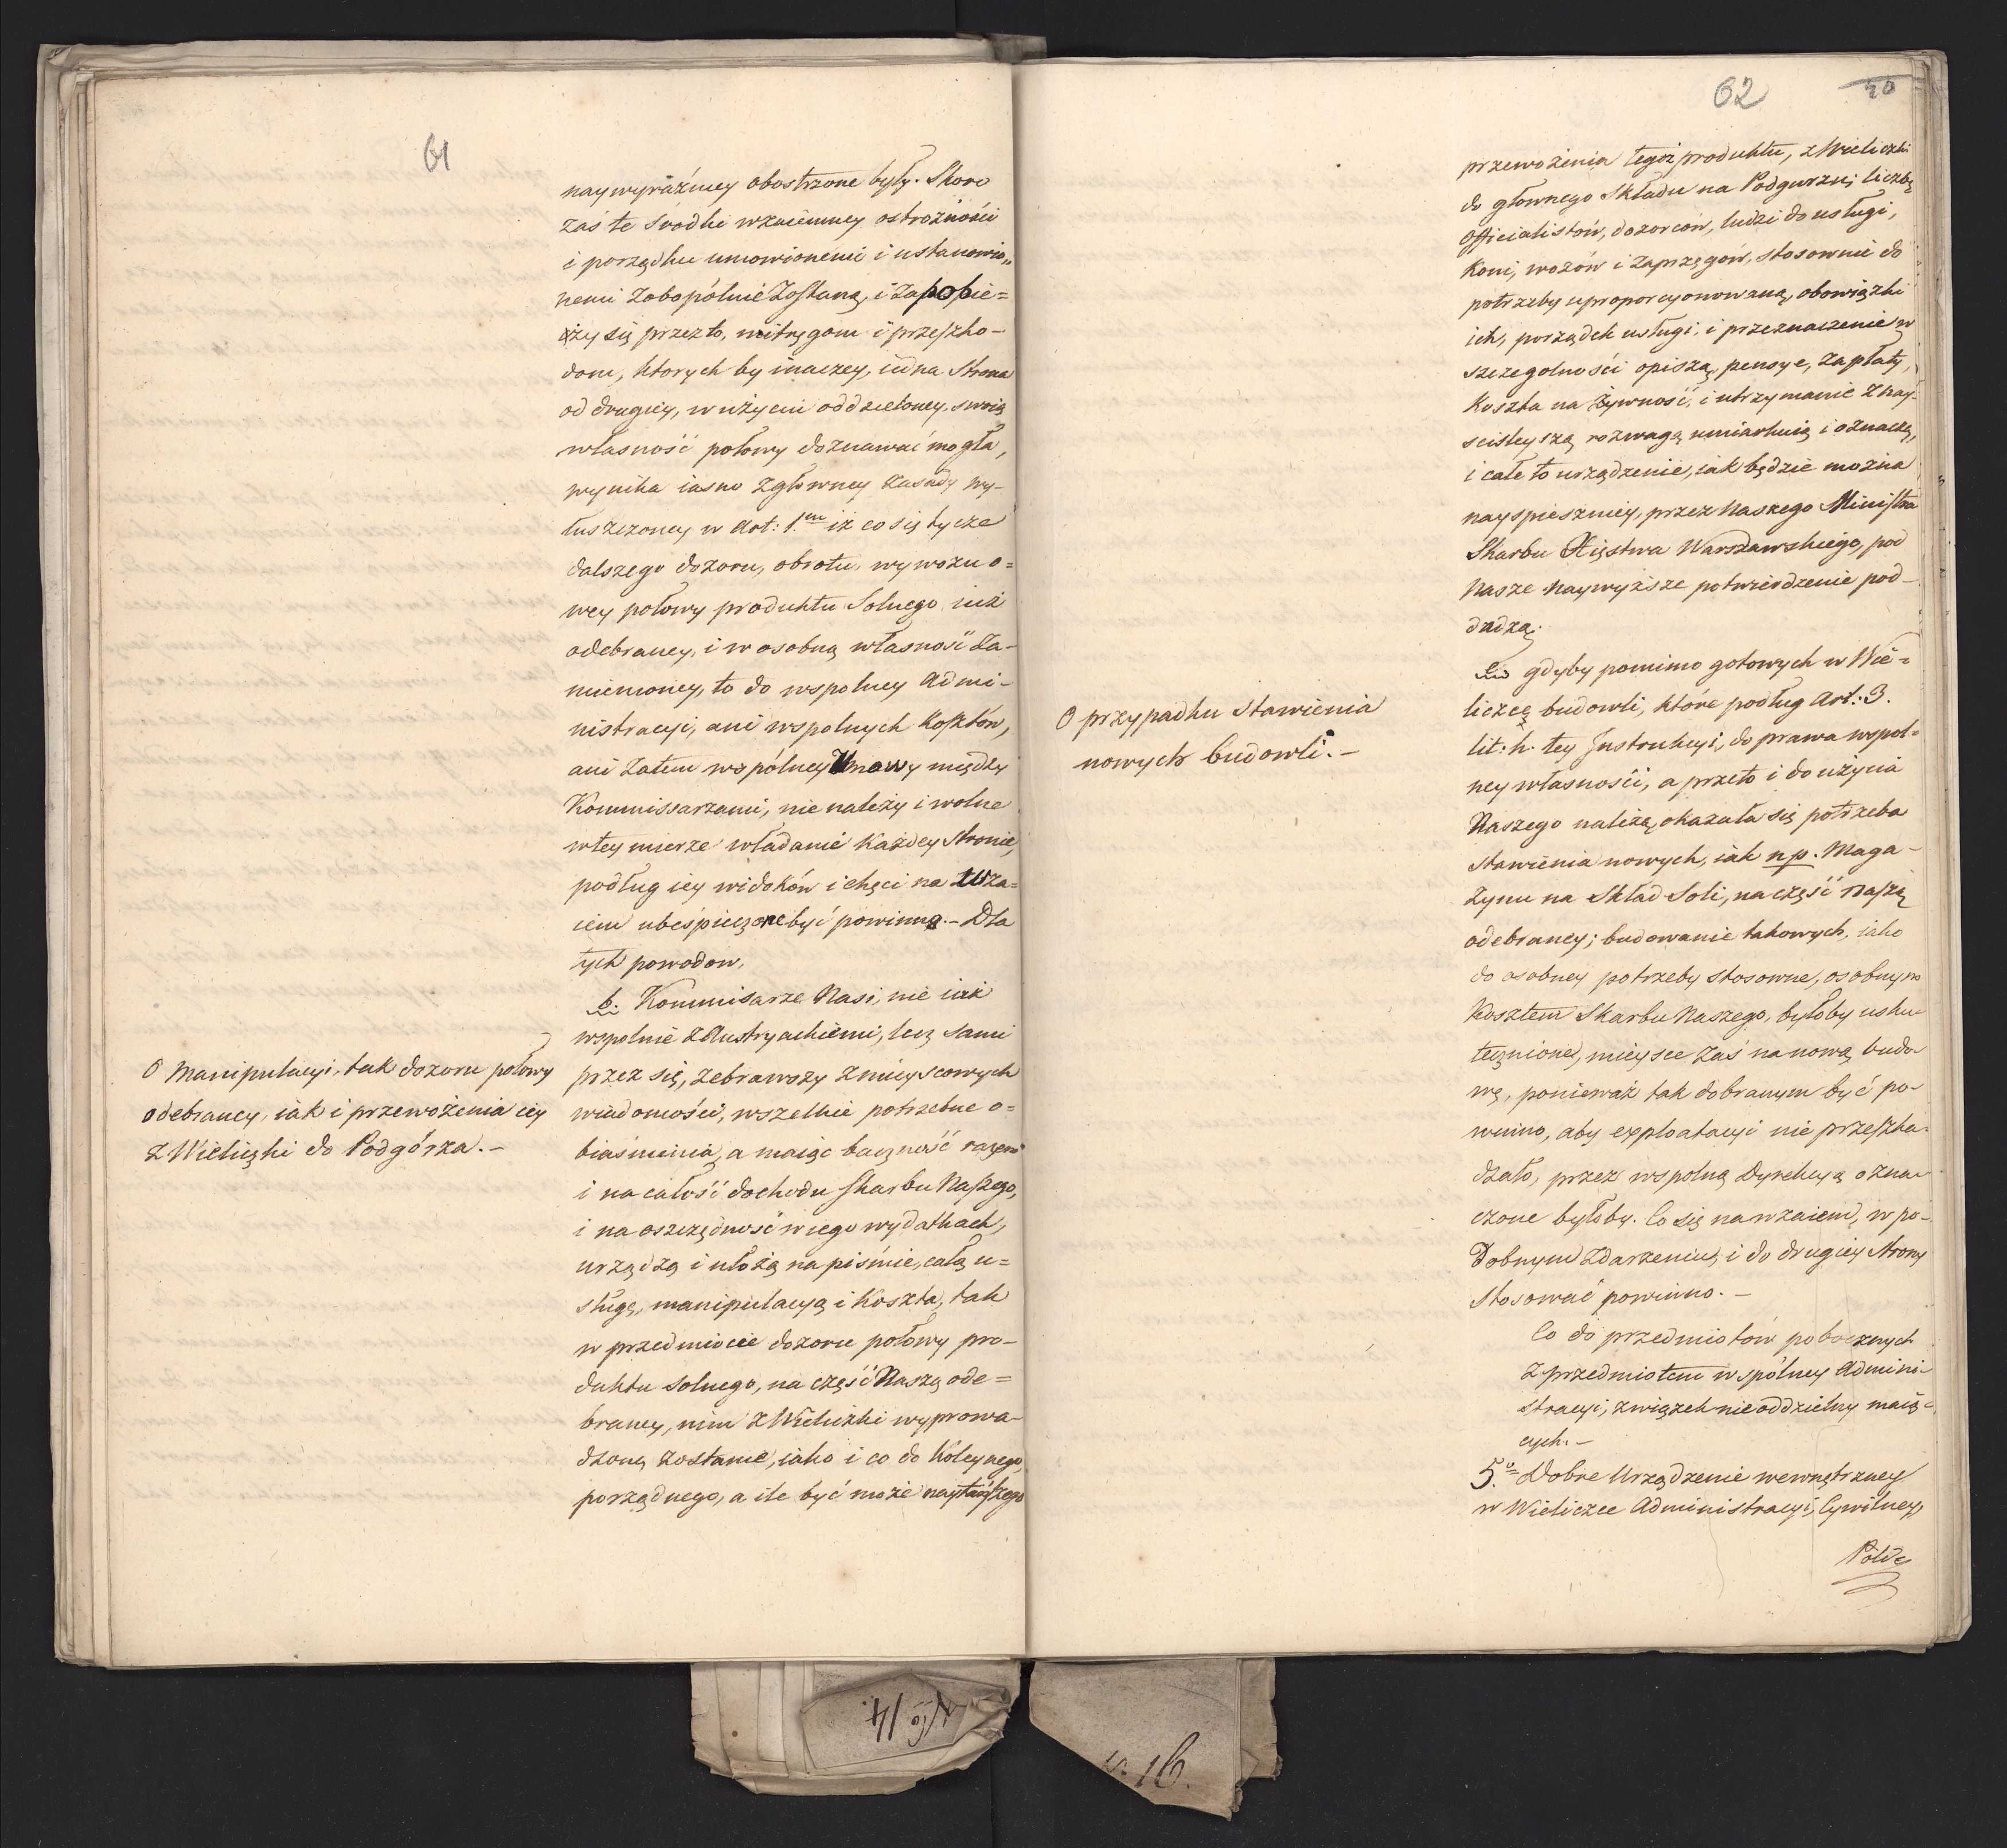 61
naywyraźniey obostrzone były. Skoro
zaś te środki wzaiemney ostrożności
i porządku umowionemi i ustanowio„
nemi zobopólnie zostaną, i zapobie=
ży się przez to, mitręgom i przeszko-
dom, ktorych by inaczey, iedna Strona
od drugiey, w użyciu oddzieloney, swoią
własność połowy doznawać mogła,
wynika iasno z głowney zasady wy-
łuszczoney w Art: 1.em iż co się tycze
dalszego dozoru, obrotu, wywozu o=
wey połowy produktu Solnego, iuż
odebraney, i w osobną własność za-
mienioney, to do wspolney Admi-
nistracyi, ani wspolnych Kosztów,
ani zatem wspólney Umowy między
Kommissarzami, nie należy i wolne
w tey mierze władanie każdey Stronie,
podług iey widoków i chęci na wza=
iem ubeśpieczone być powinno. - Dla
tych powodow,
b. Kommisarze Nasi, nie iuż
wspolnie z Austryackiemi, lecz sami
O Manipulacyi, tak dozoru połowy
odebraney, iak i przewożenia iey
z Wieliczki do Podgórza. -
przez się, zebrawszy z mieyscowych
wiadomości, wszelkie potrzebne o=
biaśnienia, a maiąc baczność razem
i na całość dochodu skarbu Naszego,
i na oszczędność w iego wydatkach,
urządzą i ułożą na piśmie, całą u=
sługę, manipulacyą i Koszta, tak
w przedmiocie dozoru połowy pro-
duktu solnego, na część Naszą ode=
braney, nim z Wieliczki wyprowa-
dzoną zostanie, iako i co do Koleynego,
porządnego, a ile być może naytańszego
62
przewożenia tegoż produktu, z Wieliczki
do głownego Składu na Podgurzu; liczbę
Officialistów, dozorców, ludzi do usługi,
Koni, wozów i zaprzęgów, stosownie do
potrzeby uproporcyonowaną, obowiązki
ich, porządek usługi, i przeznaczenie w
szczegolności opiszą, pensye, zapłaty,
Koszta na żywność, i utrzymanie z nay-
scisleyszą rozwagą umiarkuią i oznaczą,
i całe to urządzenie, iak będzie można
nayspieszniey, przez Naszego Ministra
Skarbu Xięstwa Warszawskiego, pod
Nasze Naywyższe potwierdzenie pod-
dadzą.
O przypadku Stawienia
nowych budowli. -
c. gdyby pomimo gotowych w Wie=
liczce budowli, które podług Art: 3.
lit: h. tey Instrukcyi, do prawa wspol=
ney własności, a przeto i do użycia
Naszego należą, okazała się potrzeba
Stawienia nowych, iak np. Maga-
zynu na Skład Soli, na część Naszą
odebraney; budowanie takowych, iako
do osobney potrzeby stosowne, osobnym
Kosztem Skarbu Naszego, byłoby usku-
tecznione, mieysce zaś na nową budo-
wę, ponieważ tak dobranym być po-
winno, aby exploatacyi nie przeszka-
dzało, przez wspolną Dyrekcyą ozna-
czone byłoby. Co się nawzaiem, w po-
dobnym zdarzeniu, i do drugiey Strony
Stosować powinno. -
Co do przedmiotów pobocznych
z przedmiotem wspólney Admini-
stracyi, związek nieoddzielny maią-
cych. -
5.o Dobre Urządzenie wewnętrzney
w Wieliczce Administracyi, Cywilney,
No 14.
16.